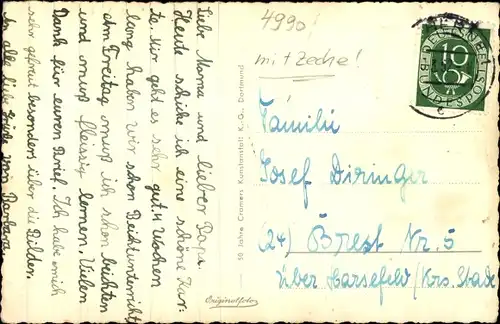 Liebe Mama und lieber Papa.
Heute schicke ich eine schöne Kar=
te. Mir geht es sehr gut. 4 Wochen
lang haben wir schon Beichtunterricht,
am Freitag muß ich schon beichten
und muß fleissig lernen. Vielen
Dank für euren Brief. Ich habe mich
sehr gefreut besonders über die Bilder.
In aller Liebe Grüße von Barbara
50 Jahre Cramers Kunstanstalt K.-G., Dortmund
Originalfoto
4990
mit Zeche!
10
DEUTSCHE
BUNDESPOST
Familie
Josef Diringer
(24) Brest Nr. 5
über Harsefeld/Krs. Stade